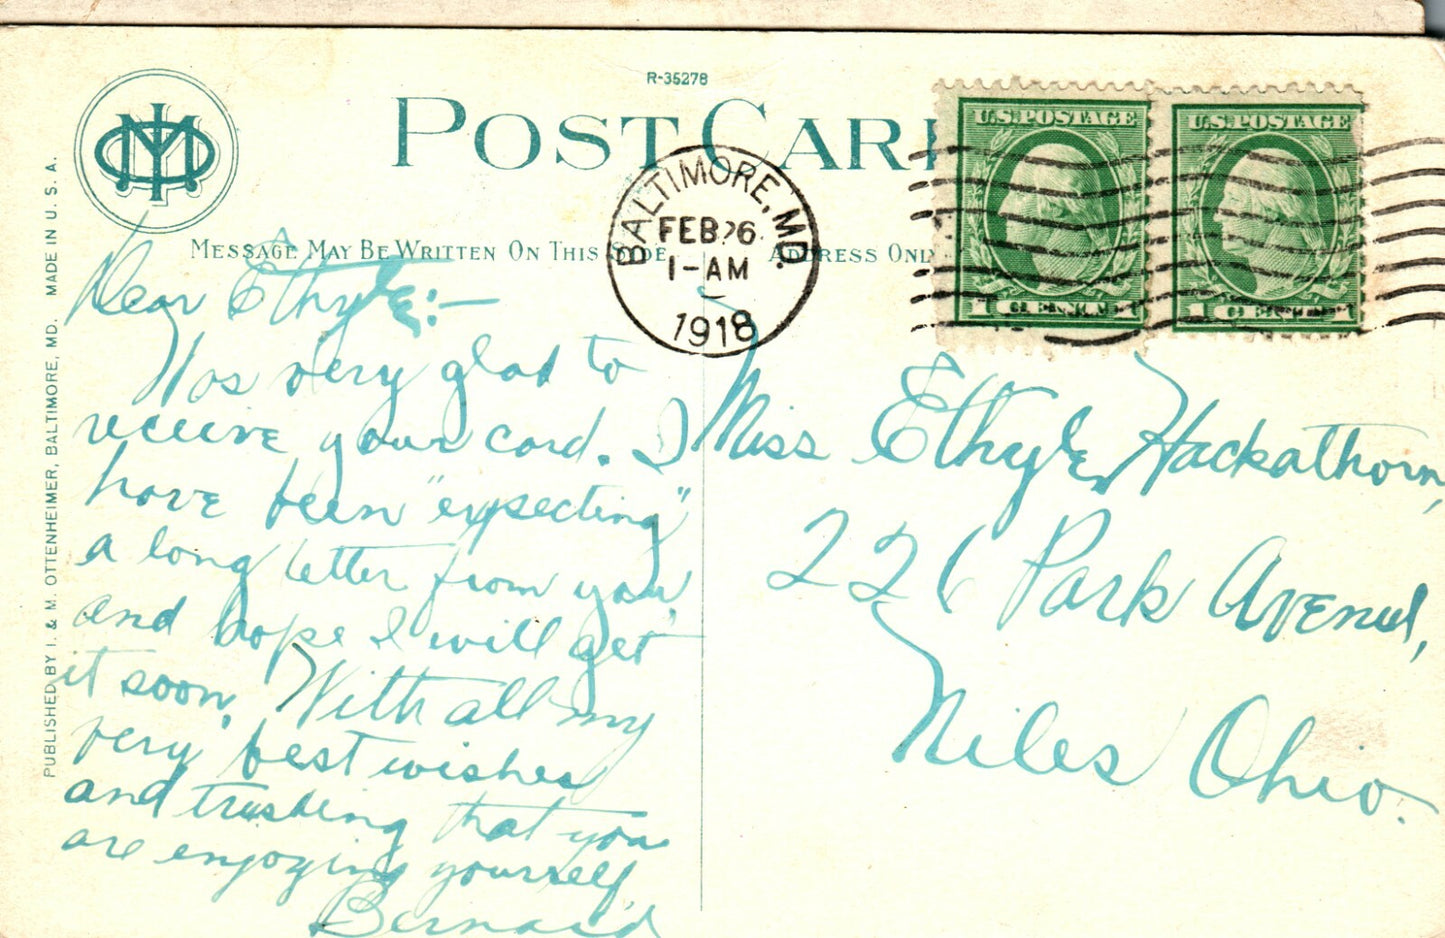 R-35278
POST CAR
MESSAGE MAY BE WRITTEN ON THIS SIDE
ADDRESS ONL
PUBLISHED BY I. & M. OTTENHEIMER, BALTIMORE, MD. MADE IN U. S. A.
BALTIMORE, MD.
FEB 26
1-AM
1918
U.S. POSTAGE
U.S. POSTAGE
Dear Ethyle:—
Was very glad to
receive your card. I
have been "expecting"
a long letter from you,
and hope I will get
it soon, With all my
very best wishes
and trusting that you
are enjoying yourself,
Bernard
Miss Ethyle Hackathorn,
226 Park Avenue,
Niles Ohio.